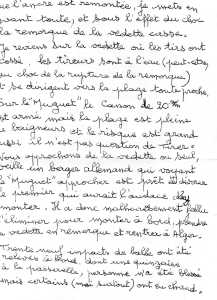 que l'ancre est remontée, je mets en
avant toute, et sous l'effet du choc
la remorque de la vedette casse.
Je reviens sur la vedette où les tirs ont
cessé, les tireurs sont à l'eau (peut-être,
au choc de la rupture de la remorque)
et se dirigent vers la plage toute proche.
Sur le "Muguet" le canon de 20 mm
est armé mais la plage est pleine
de baigneurs et le risque est grand
aussi il n'est pas question de tirer.
Nous approchons de la vedette où, seul,
veille un berger allemand qui voyant
le "Muguet" approcher est prêt à dévorer
le premier qui aurait l'audace de
monter. Il a donc malheureusement fallu
l'éliminer pour monter à bord, prendre
la vedette en remorque et rentrer à Alger.
Trente neuf impacts de balle ont été
relevés à bord, dont une quinzaine
à la passerelle, personne n'a été blessé
mais certains (moi surtout) ont eu chaud.